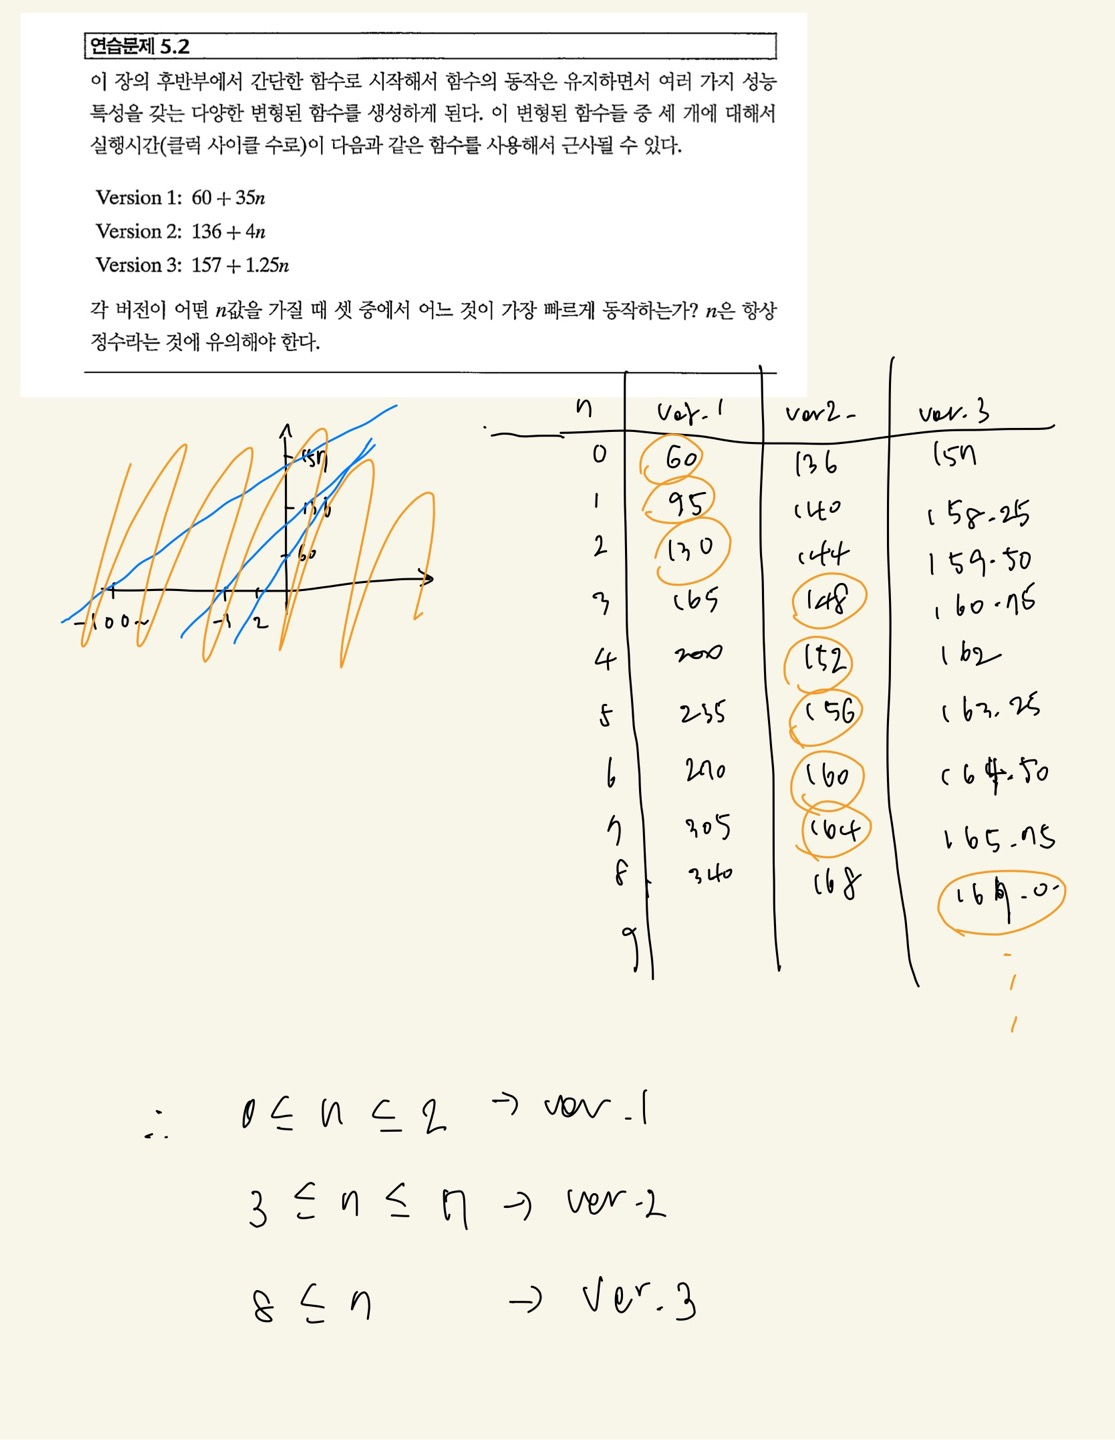 연습문제 5.2
이 장의 후반부에서 간단한 함수로 시작해서 함수의 동작은 유지하면서 여러 가지 성능
특성을 갖는 다양한 변형된 함수를 생성하게 된다. 이 변형된 함수들 중 세 개에 대해서
실행시간(클럭 사이클 수로)이 다음과 같은 함수를 사용해서 근사될 수 있다.
Version 1: 60 + 35n
Version 2: 136 + 4n
Version 3: 157 + 1.25n
각 버전이 어떤 n값을 가질 때 셋 중에서 어느 것이 가장 빠르게 동작하는가? n은 항상
정수라는 것에 유의해야 한다.
157
136
60
-100~ -1 2
n ver.1 ver2. ver.3
0 60 136 157
1 95 140 158.25
2 130 144 159.50
3 165 148 160.75
4 200 152 162
5 235 156 163.25
6 270 160 164.50
7 305 164 165.75
8 340 168 167.0
9
∴ 0 ≤ n ≤ 2 → ver.1
3 ≤ n ≤ 7 → ver.2
8 ≤ n → ver.3